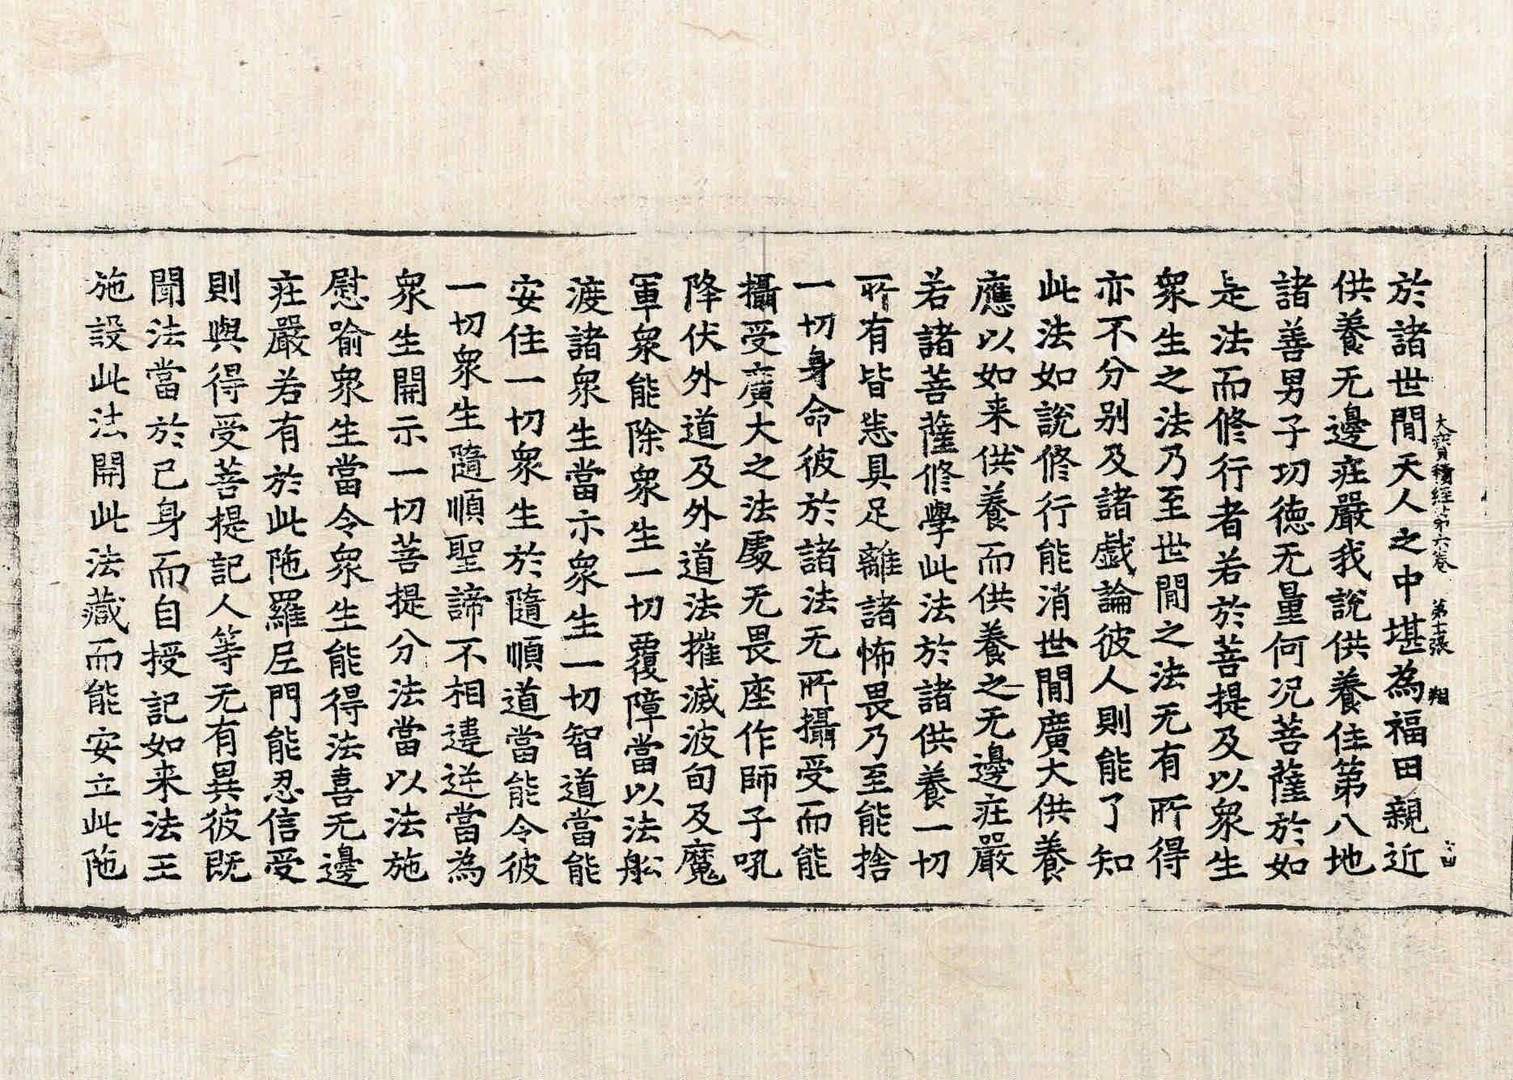 大寶積經第六卷 張 翔
於諸世間天人之中堪為福田親近
供養无邊莊嚴我說供養住第八地
諸善男子功徳无量何况菩薩於如
是法而修行者若於菩提及以衆生
衆生之法乃至世間之法无有所得
亦不分别及諸戲論彼人則能了知
此法如說修行能消世間廣大供養
應以如来供養而供養之无邊莊嚴
若諸菩薩修學此法於諸供養一切
所有皆悉具足離諸怖畏乃至能捨
一切身命彼於諸法无所攝受而能
攝受廣大之法處无畏座作師子吼
降伏外道及外道法摧滅波旬及魔
軍衆能除衆生一切覆障當以法舩
渡諸衆生當示衆生一切智道當能
安住一切衆生於隨順道當能令彼
一切衆生隨順聖諦不相違逆當為
衆生開示一切菩提分法當以法施
慰喻衆生當令衆生能得法喜无邊
莊嚴若有於此陁羅尼門能忍信受
則與得受菩提記人等无有異彼既
聞法當於己身而自授記如来法王
施設此法開此法藏而能安立此陁